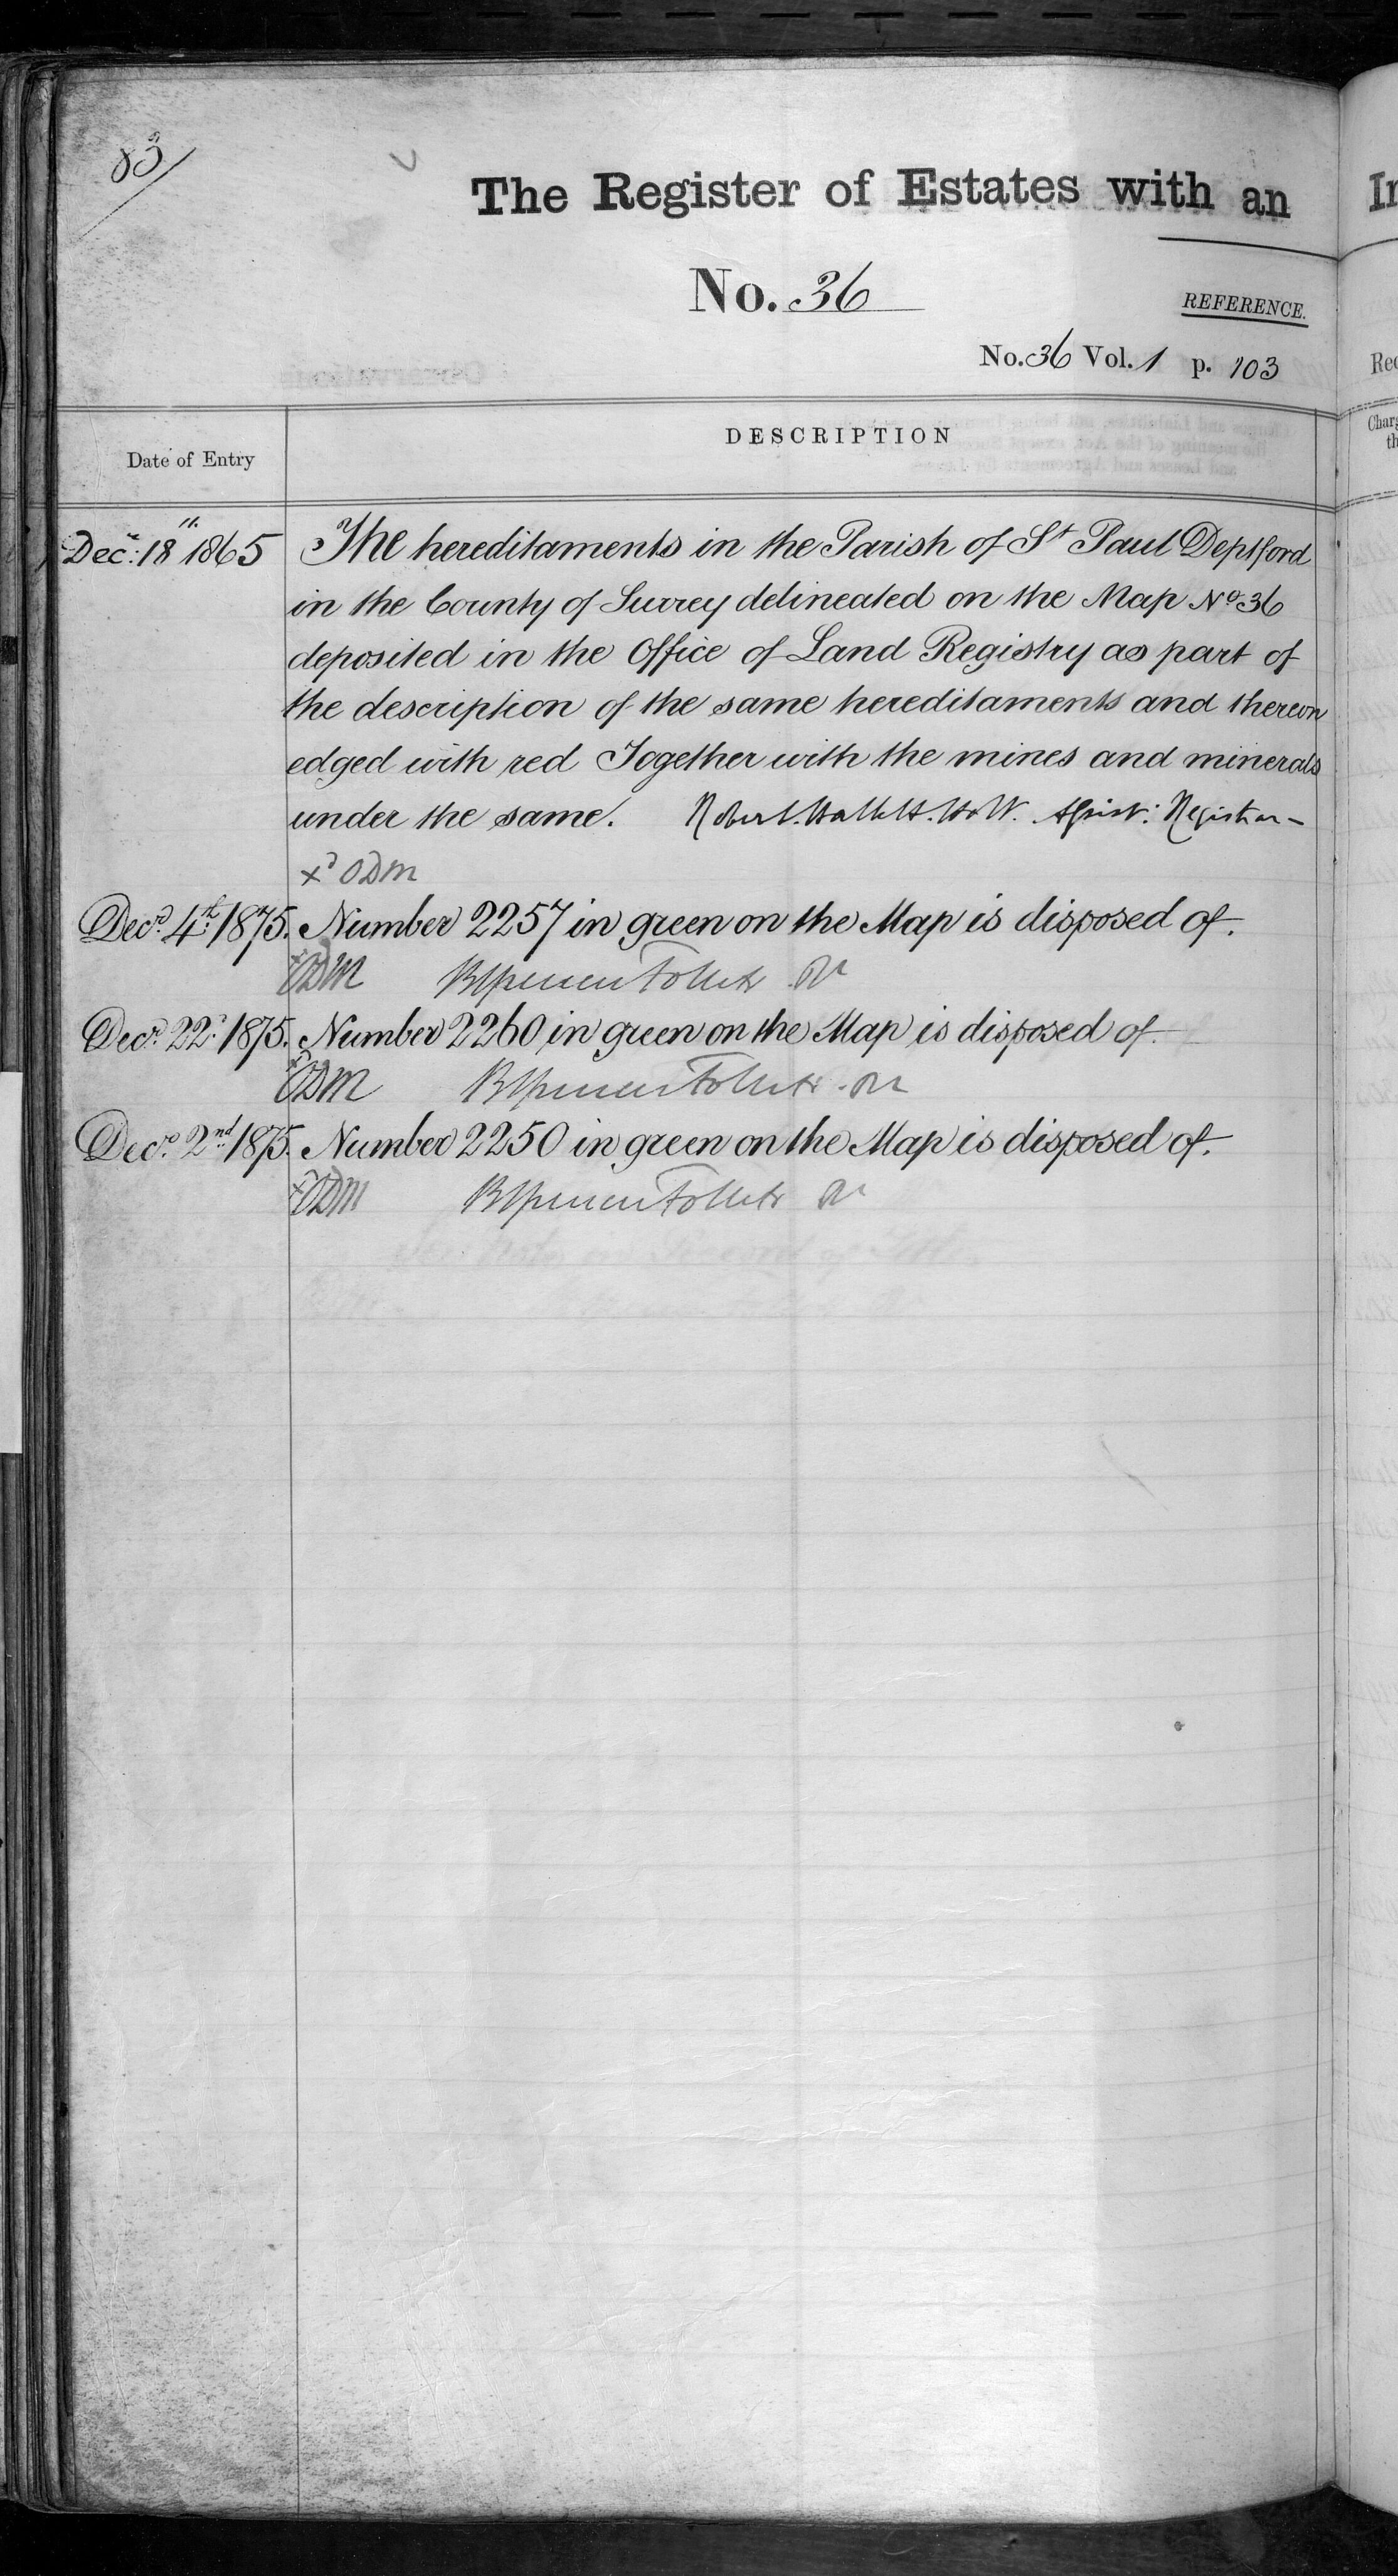 83
The Register of Estates with an
No. 36
REFERENCE.
No. 36 Vol. 1 p. 103
Date of Entry
DESCRIPTION
Decr: 18 1865 The hereditaments in the Parish of St Paul Deptford
in the County of Surrey delineated on the Map No 36
deposited in the Office of Land Registry as part of
the description of the same hereditaments and thereon
edged with red Together with the mines and minerals
under the same. Robert Hallett Holt. Assist: Registrar
xd ODM
Decr. 4th 1875. Number 2257 in green on the Map is disposed of.
xd ODM Follett
Decr. 22d 1875. Number 2260 in green on the Map is disposed of.
xd ODM Follett
Decr. 2nd 1875. Number 2250 in green on the Map is disposed of.
xd ODM Follett